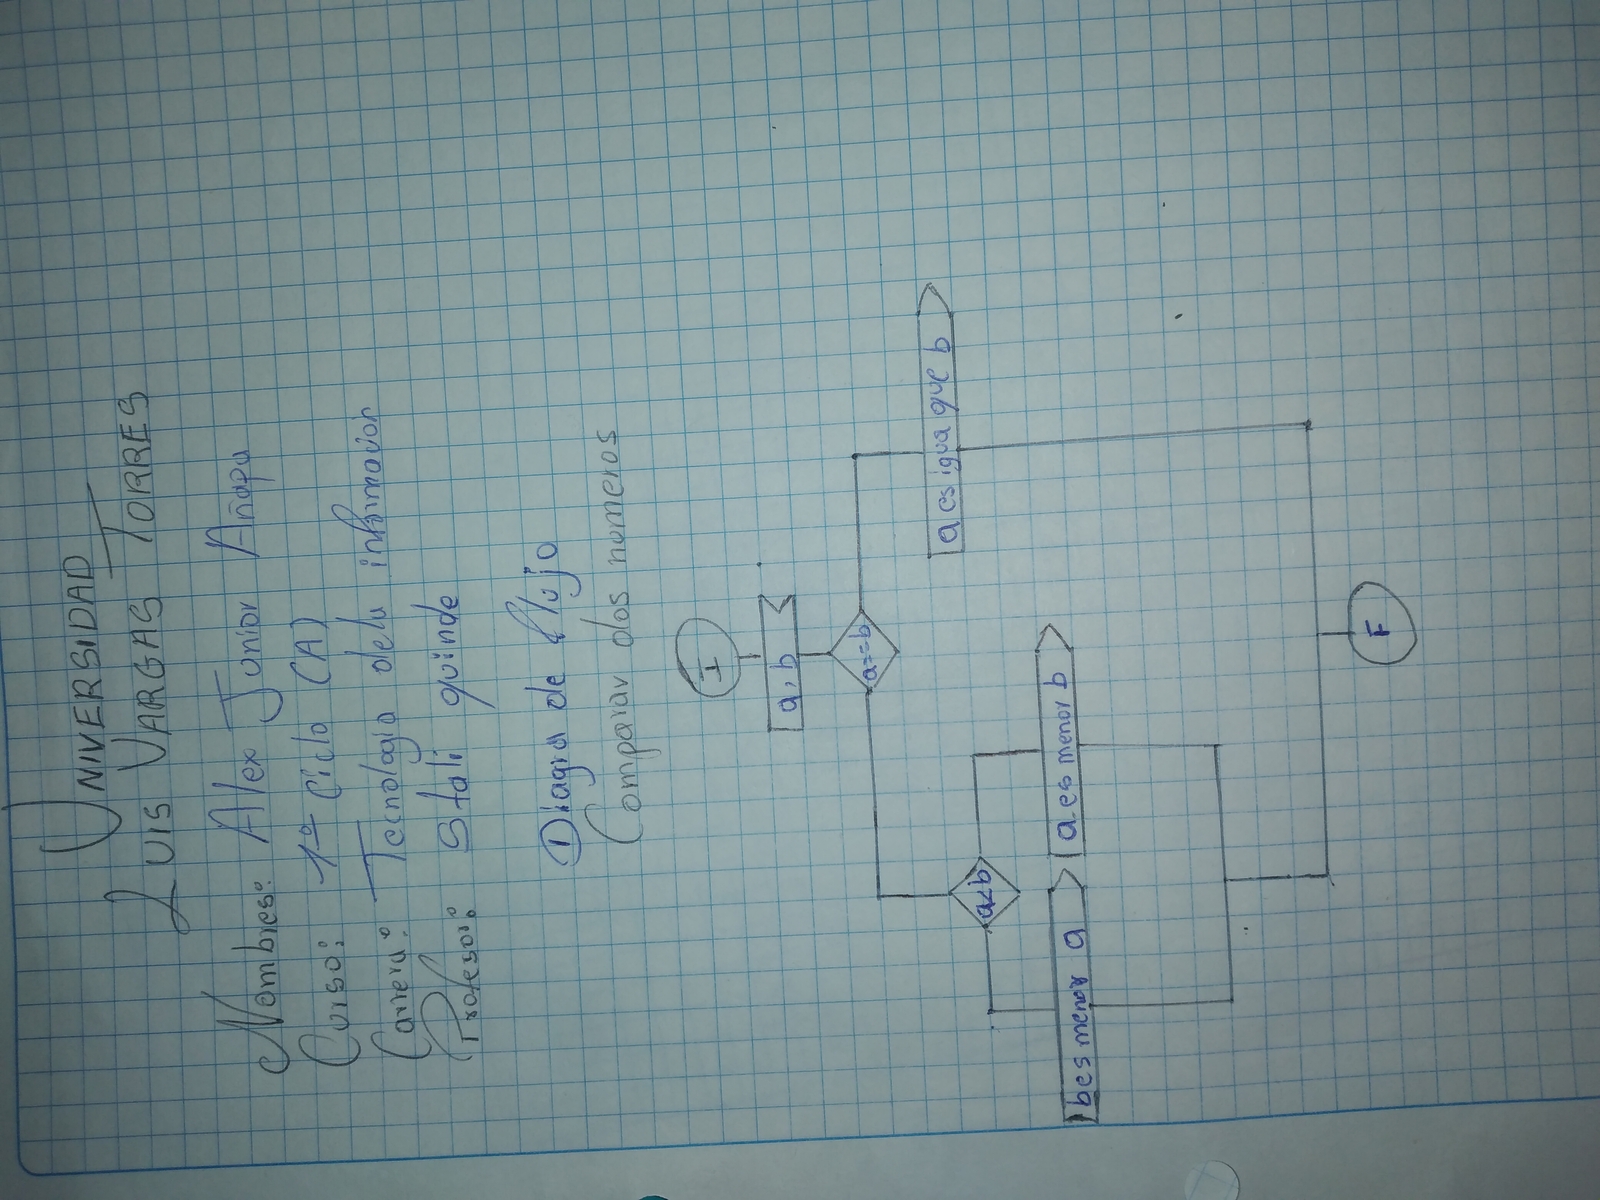 UNIVERSIDAD
LUIS VARGAS TORRES
Nombres: Alex Junior Añapa
Curso: 1º Ciclo (A)
Carrera: Tecnologia dela informacion
Profesor: Stali quinde
Diagra de flujo
Comparar dos numeros
I
a, b
a==b
a es igua que b
a<b
b es menor a
a es menor b
F